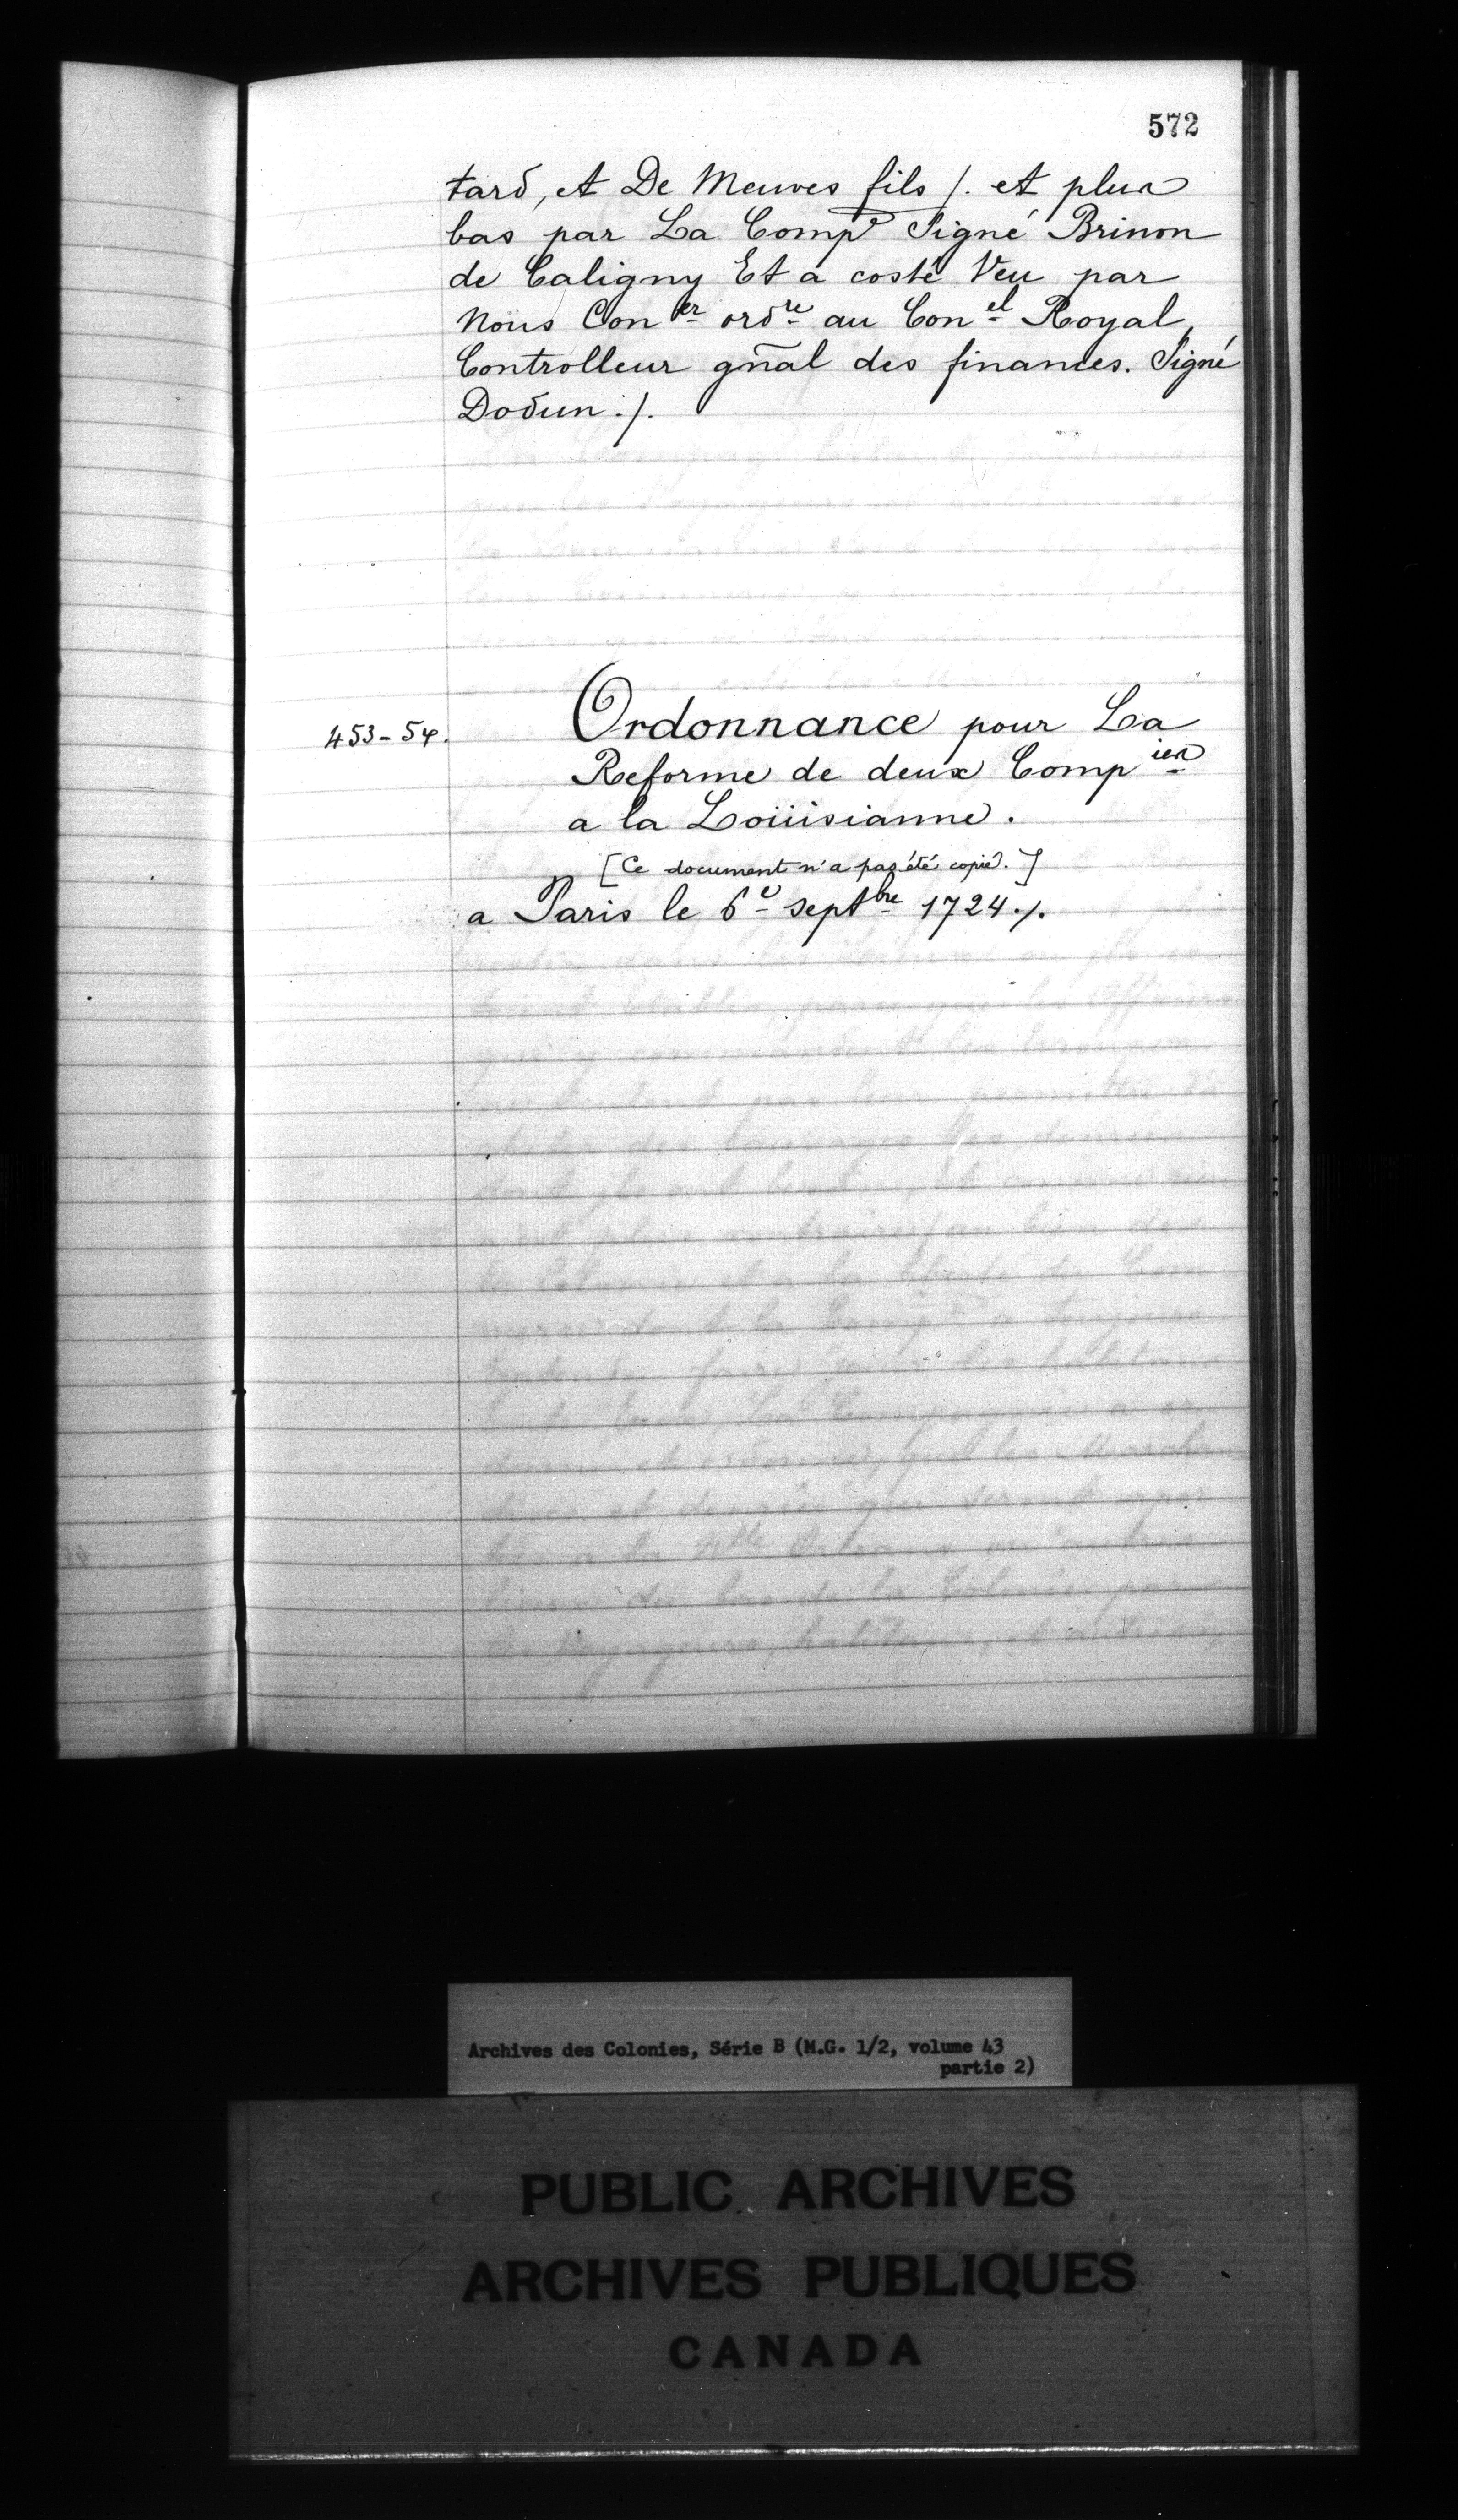 572
tard, et De Meuves fils /. et plus
bas par La Compe Signé Brinon
de Caligny Et a costé Veu par
Nous Coner ordre au Conel Royal,
Controlleur gñal des finances. Signé
Dodun ./.
453-54.
Ordonnance pour La
Reforme de deux Compies
a la Loüisianne.
[Ce document n'a pas été copié.]
a Paris le 6e septbre 1724 ./.
Archives des Colonies, Série B (M.G. 1/2, volume 43
partie 2)
PUBLIC ARCHIVES
ARCHIVES PUBLIQUES
CANADA